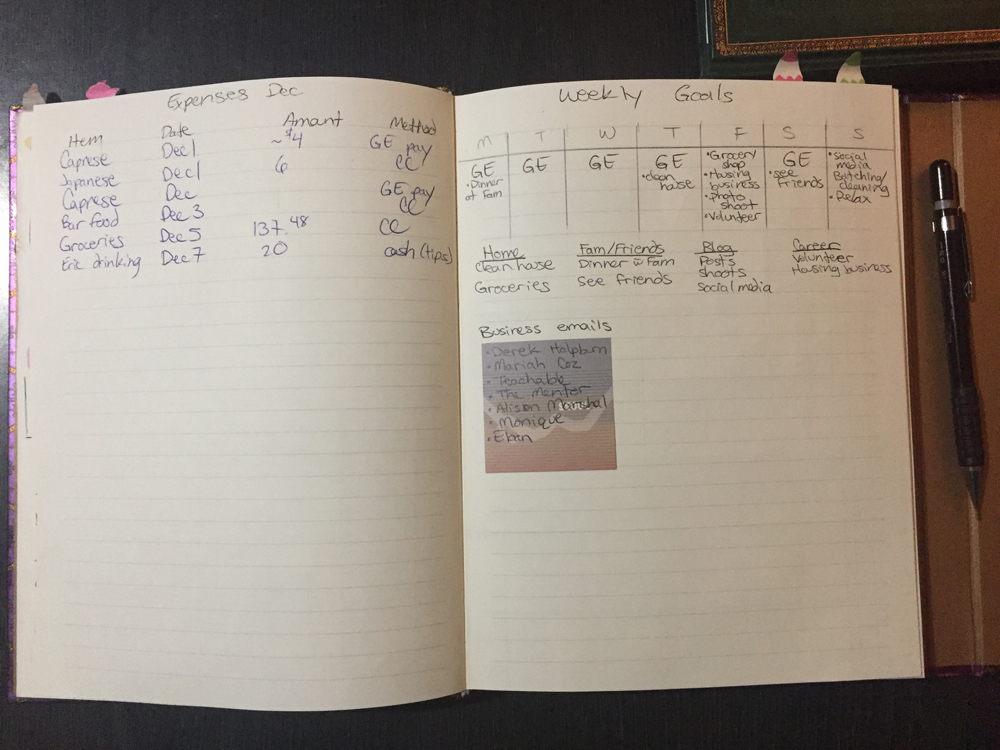 Expenses Dec
Item Date Amount Method
Caprese Dec 1 ~$4 GE pay
Japanese Dec 1 6 CC
Caprese Dec GE pay
Bar food Dec 3 CC
Groceries Dec 5 137.48 CC
Eric drinking Dec 7 20 cash (tips)
Weekly Goals
M T W T F S S
GE GE GE GE • Grocery GE • Social
• Dinner • clean shop • see media
at Fam house • Housing friends Batching/
business cleaning
• Photo • Relax
shoot
• Volunteer
Home Fam/Friends Blog Career
Clean house Dinner w Fam Posts Volunteer
Groceries See friends shoots Housing business
social media
Business emails
• Derek Halpburn
• Mariah Coz
• Teachable
• The Mentor
• Alison Marshal
• Monique
• Eban